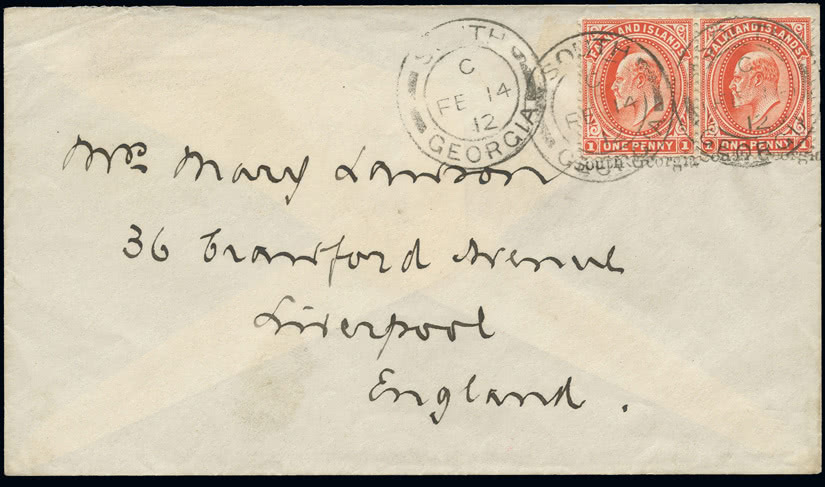 SOUTH G
C
FE 14
12
GEORGIA
SOUTH
C
FE 14
FALKLAND ISLANDS
1 ONE PENNY 1
South Georgia
FALKLAND ISLANDS
12
1 ONE PENNY 1
South Georgia
Mrs Mary Lawson
36 Crawford Avenue
Liverpool
England.